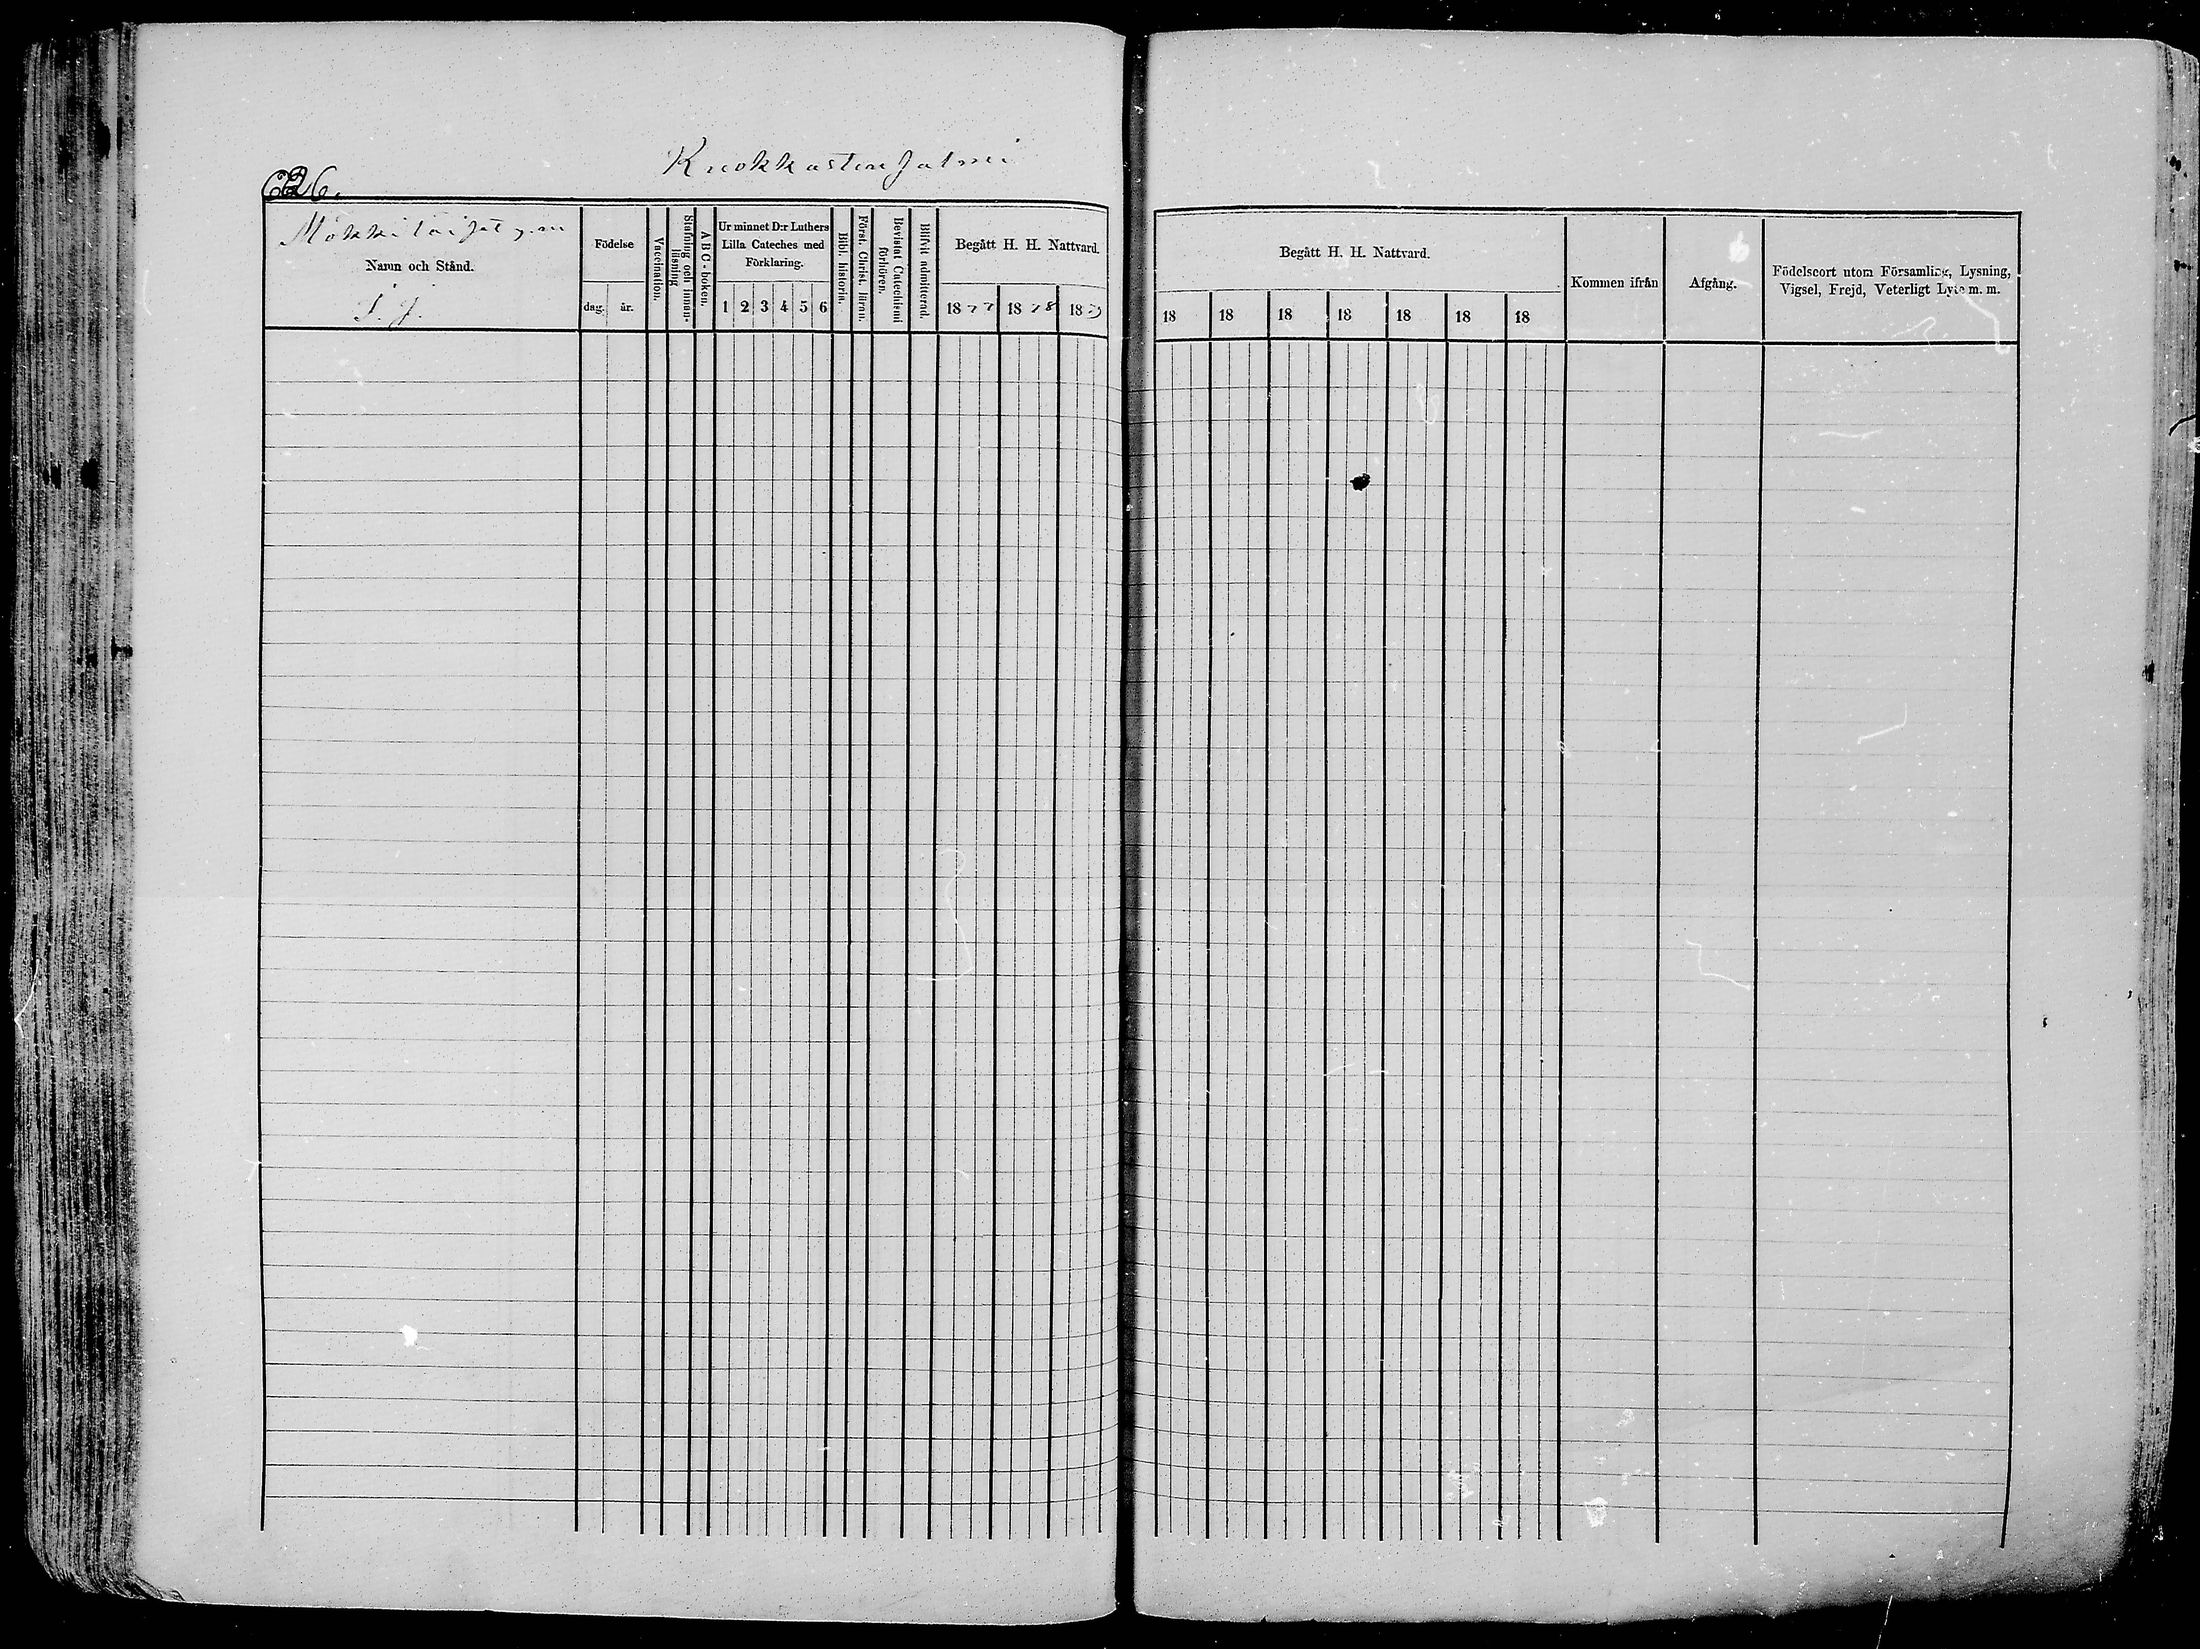 Kuokkastensalmi
626.
Mökkiläiset y.m.
Namn och Stånd.
Födelse
dag. år.
Vaccination.
Stafning och innan-
läsning
A B C-boken.
Ur minnet D:r Luthers
Lilla Cateches med
Förklaring.
1 2 3 4 5 6
Bibl. historia.
Först. Christ. läran.
Bevistat Catechismi
förhören.
Blifvit admitterad.
Begått H. H. Nattvard.
1877 1878 1879
Begått H. H. Nattvard.
18 18 18 18 18 18 18
Kommen ifrån
Afgång.
Födelseort utom Församling, Lysning,
Vigsel, Frejd, Veterligt Lyte m. m.